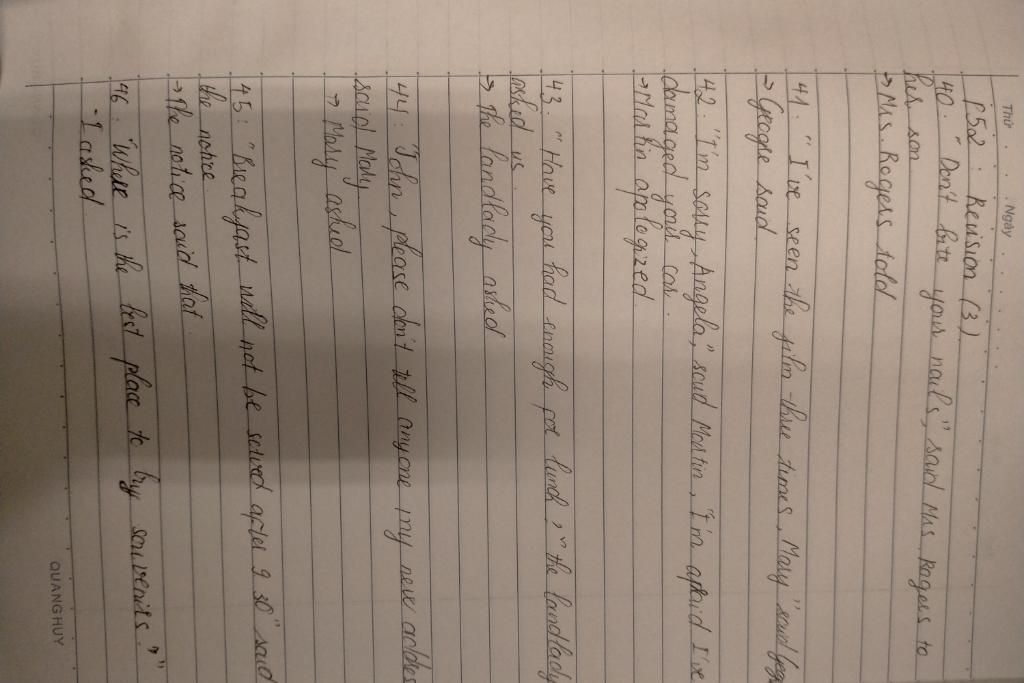 Thứ
Ngày
p52 : Revision (3)
40. "Don't bite your nails," said Mrs. Rogers to
her son
→ Mrs Rogers told
41. "I've seen the film three times, Mary" said
→ George said
42. "I'm sorry, Angela," said Martin, "I'm afraid I've
damaged your car.
→ Martin apologized
43. "Have you had enough for lunch?," the landlady
asked us.
→ The landlady asked
44. "John, please don't tell anyone my new addres
said Mary
→ Mary asked
45: "Breakfast will not be served after 9 30" said
the notice
→ The notice said that
46. "Where is the best place to buy souvenirs?"
- I asked
QUANGHUY